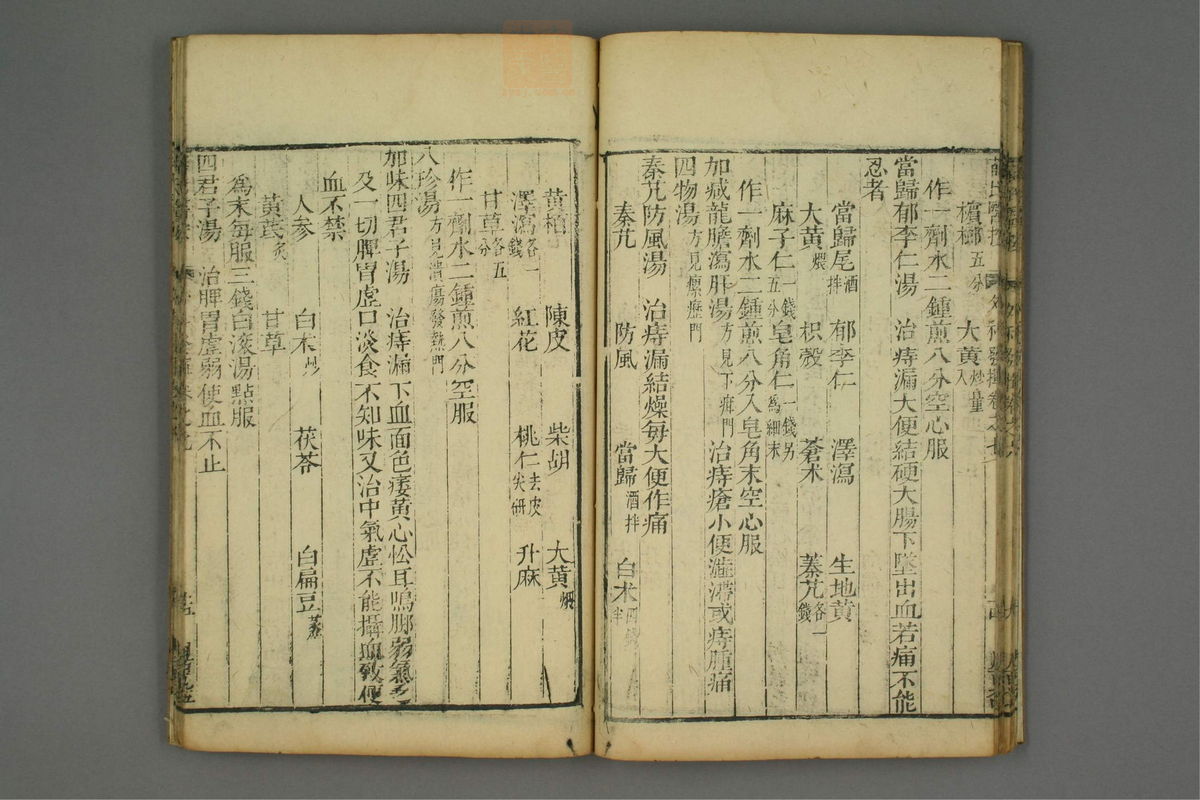 檳榔五分 大黃炒入量
作一劑水二鍾煎八分空心服
當歸郁李仁湯 治痔漏大便結硬大腸下墜出血若痛不能
忍者
當歸尾酒拌 郁李仁 澤瀉 生地黃
大黃煨 枳殼 蒼朮 蓁艽各一錢
麻子仁一錢五分 皂角仁一錢另為細末
作一劑水二鍾煎八分入皂角末空心服
加減龍膽瀉肝湯方見下疳門 治痔瘡小便澁滯或痔腫痛
四物湯方見瘰癧門
秦艽防風湯 治痔漏結燥每大便作痛
秦艽 防風 當歸酒拌 白朮
黃栢 陳皮 柴胡 大黃煨
澤瀉各一錢 紅花 桃仁去皮尖研 升麻
甘草各五分
作一劑水二鍾煎八分空服
八珍湯方見潰瘍發熱門
加味四君子湯 治痔漏下血面色痿黃心忪耳鳴脚弱氣乏
及一切脾胃虛口淡食不知味又治中氣虛不能攝血致便
血不禁
人參 白朮炒 茯苓 白扁豆蒸
黃芪炙 甘草
為末每服三錢白滾湯點服
四君子湯 治脾胃虛弱便血不止